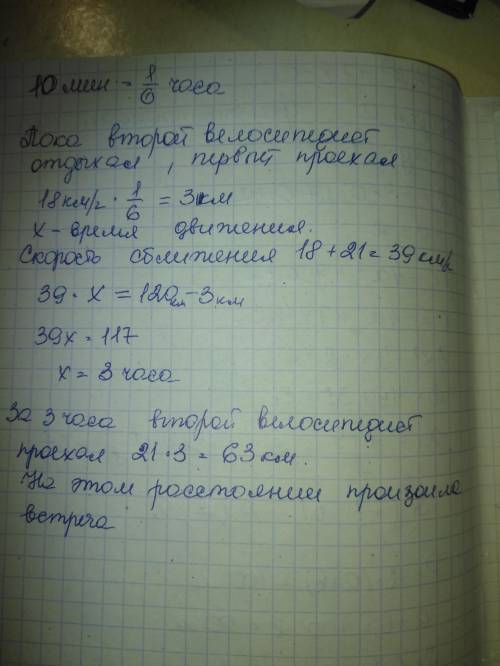 10 мин - 1/6 часа
Пока второй велосипедист
отдыхал, первый проехал
18 км/ч · 1/6 = 3 км
х - время движения.
Скорость сближения 18 + 21 = 39 км/ч
39 · х = 120 км - 3 км
39х = 117
х = 3 часа
За 3 часа второй велосипедист
проехал 21 · 3 = 63 км.
На этом расстоянии произошла
встреча